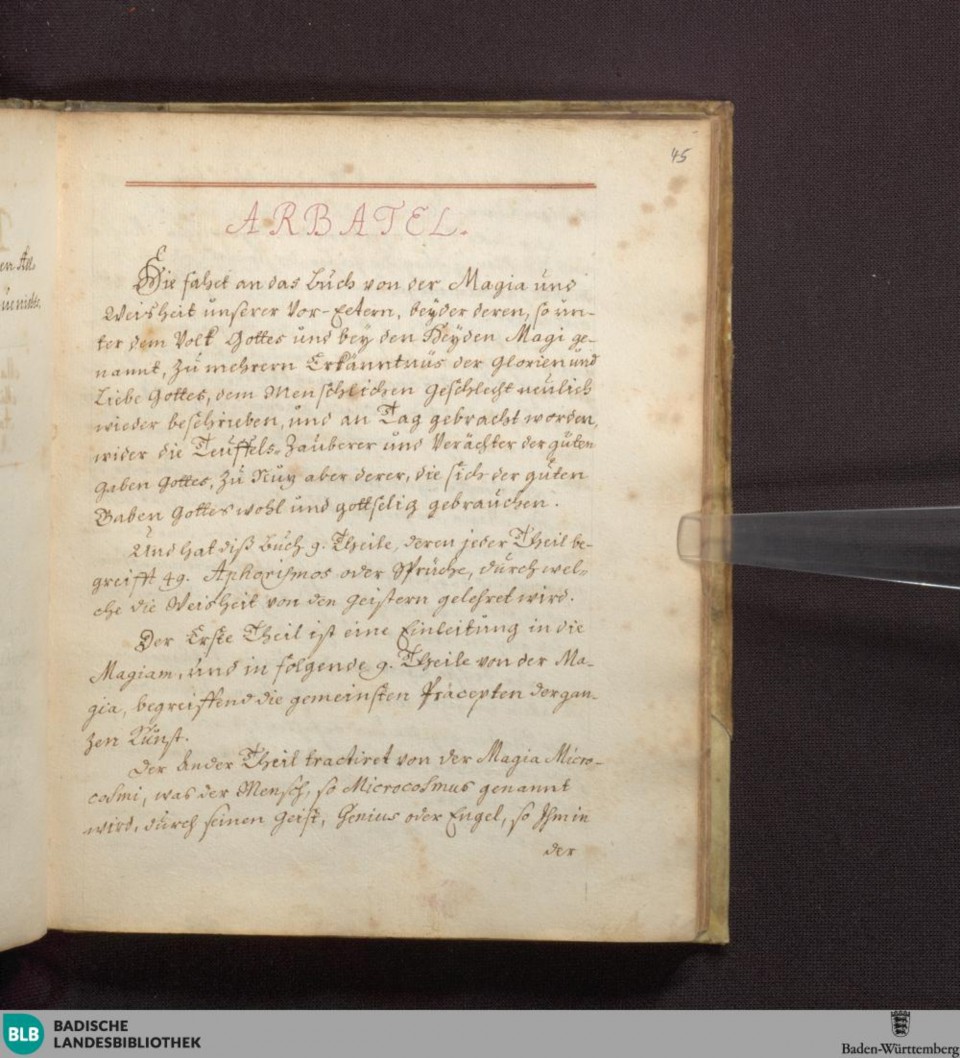 45
ARBATEL.
Hie fahet an das Buch von der Magia und
Weisheit unserer Vor-Eetern, beyder deren, so un-
ter dem Volk Gottes und bey den Heyden Magi ge-
nannt, zu mehrern Erkänntnüs der Glorien und
Liebe Gottes, dem Menschlichen Geschlecht neulich
wieder beschrieben, und an Tag gebracht worden,
wider die Teuffels-Zauberer und Verächter der guten
Gaben Gottes, zu Nuz aber derer, die sich der guten
Gaben Gottes wohl und gottselig gebrauchen.
Und hat diß Buch 9. Theile, deren jeder Theil be-
greifft 49. Aphorismos oder Sprüche, durch wel-
che die Weisheit von den Geistern gelehret wird.
Der Erste Theil ist eine Einleitung in die
Magiam, und in folgende 9. Theile von der Ma-
gia, begreiffend die gemeinsten Präcepten der gan-
zen Kunst.
Der Ander Theil tractiret von der Magia Micro-
cosmi, was der Mensch, so Microcosmus genannt
wird, durch seinen Geist, Genius oder Engel, so Ihm in
der
BLB
BADISCHE
LANDESBIBLIOTHEK
Baden-Württemberg